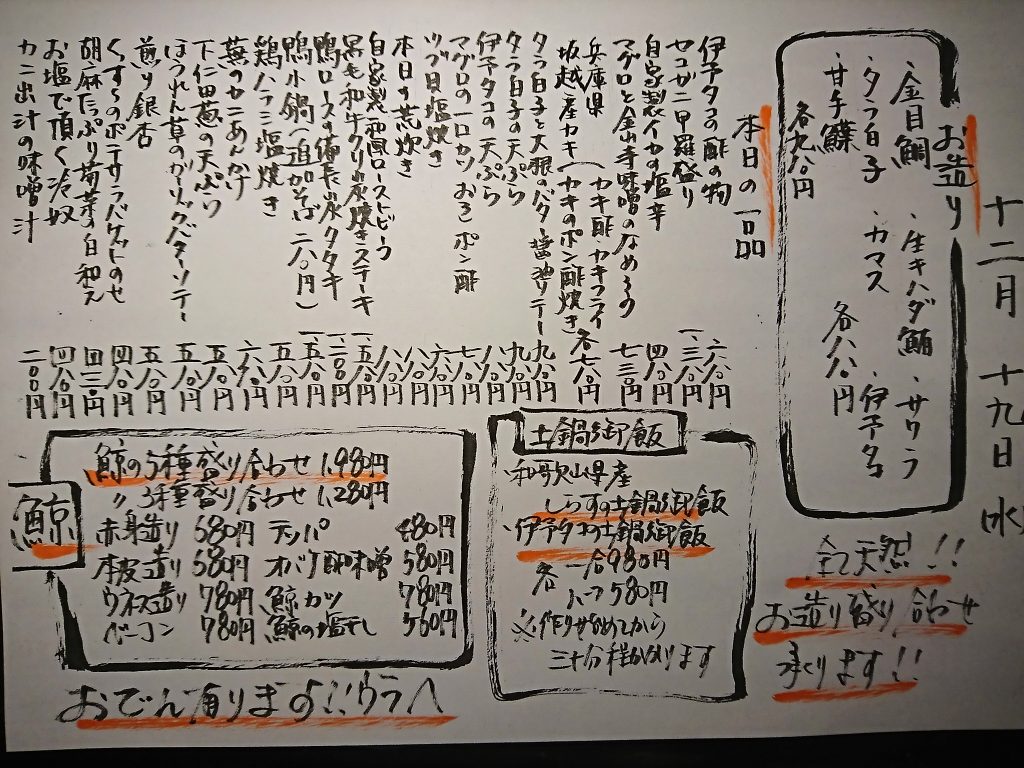 十二月 十九日 水
お造り
・金目鯛 ・生キハダ鮪 ・サワラ
・タラ白子 ・カマス ・伊予タコ
・甘手鰈 各八八〇円
各九八〇円
全て天然!!
お造り盛り合わせ
承ります!!
本日の一品
伊予タコの酢の物 六八〇円
セコガニ甲羅盛り 一、三八〇円
自家製イカの塩辛 四八〇円
マグロと金山寺味噌のなめろう 七三〇円
兵庫県 カキ酢・カキフライ
坂越産カキ(カキのポン酢焼き 各七八〇円
タラ白子と大根のバター醤油ソテー 九八〇円
タラ白子の天ぷら 九八〇円
伊予タコの天ぷら 八八〇円
マグロの一口カツ おろしポン酢 七八〇円
ツブ貝塩焼き 六八〇円
本日の荒炊き 八八〇円
自家製和風ローストビーフ 八八〇円
黒毛和牛クリ山炭焼きステーキ 一、五八〇円
鴨ロースの備長炭タタキ 一、二〇〇円
鴨小鍋(追加そば 二八〇円) 一、五八〇円
鶏ハラミ塩焼き 五八〇円
蕪のカニあんかけ 六八〇円
下仁田葱の天ぷら 五八〇円
ほうれん草のガーリックバターソテー 五八〇円
煎り銀杏 五八〇円
くずしのポテサラバゲットのせ 四八〇円
胡麻たっぷり菊菜の白和え 四三〇円
お塩で頂く冷奴 四八〇円
カニ出汁の味噌汁 二〇〇円
土鍋御飯
和歌山県産
しらすの土鍋御飯
・伊予タコの土鍋御飯
各 一合980円
ハーフ580円
※作り始めてから
三十分程かかります
鯨
鯨の5種盛り合わせ 1,980円
〃 3種盛り合わせ 1,280円
赤身造り 680円 テッパ 480円
本皮造り 580円 オバケ酢味噌 580円
ウネス造り 780円 鯨カツ 780円
ベーコン 780円 鯨の塩干し 560円
おでん有ります!!ウラへ